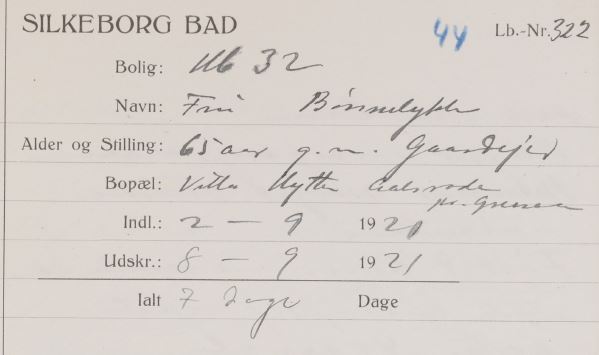 SILKEBORG BAD 44 Lb.-Nr. 322
Bolig: 32
Navn: Fru Bönnelykke
Alder og Stilling: 65 aar g. m. Gaardejer
Bopæl: Villa Hytten
pr. Grenaa
Indl.: 2 - 9 1921
Udskr.: 8 - 9 1921
Ialt 7 Dage Dage